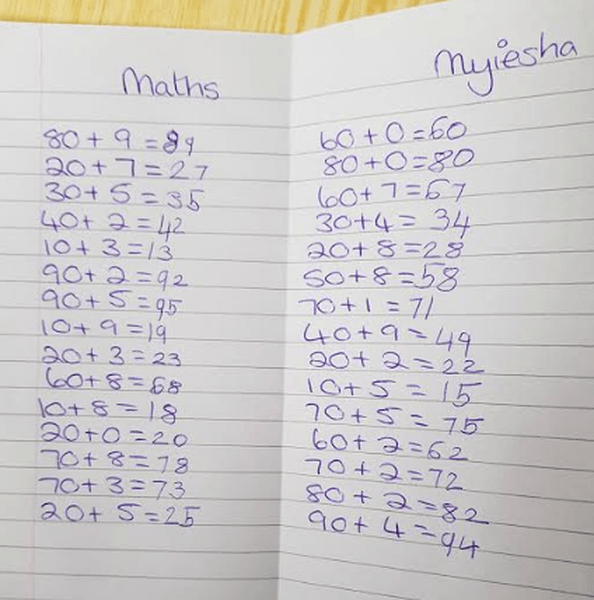 Maths
80 + 9 = 89
20 + 7 = 27
30 + 5 = 35
40 + 2 = 42
10 + 3 = 13
90 + 2 = 92
90 + 5 = 95
10 + 9 = 19
20 + 3 = 23
60 + 8 = 68
10 + 8 = 18
20 + 0 = 20
70 + 8 = 78
70 + 3 = 73
20 + 5 = 25
Myiesha
60 + 0 = 60
80 + 0 = 80
60 + 7 = 67
30 + 4 = 34
20 + 8 = 28
50 + 8 = 58
70 + 1 = 71
40 + 9 = 49
20 + 2 = 22
10 + 5 = 15
70 + 5 = 75
60 + 2 = 62
70 + 2 = 72
80 + 2 = 82
90 + 4 = 94